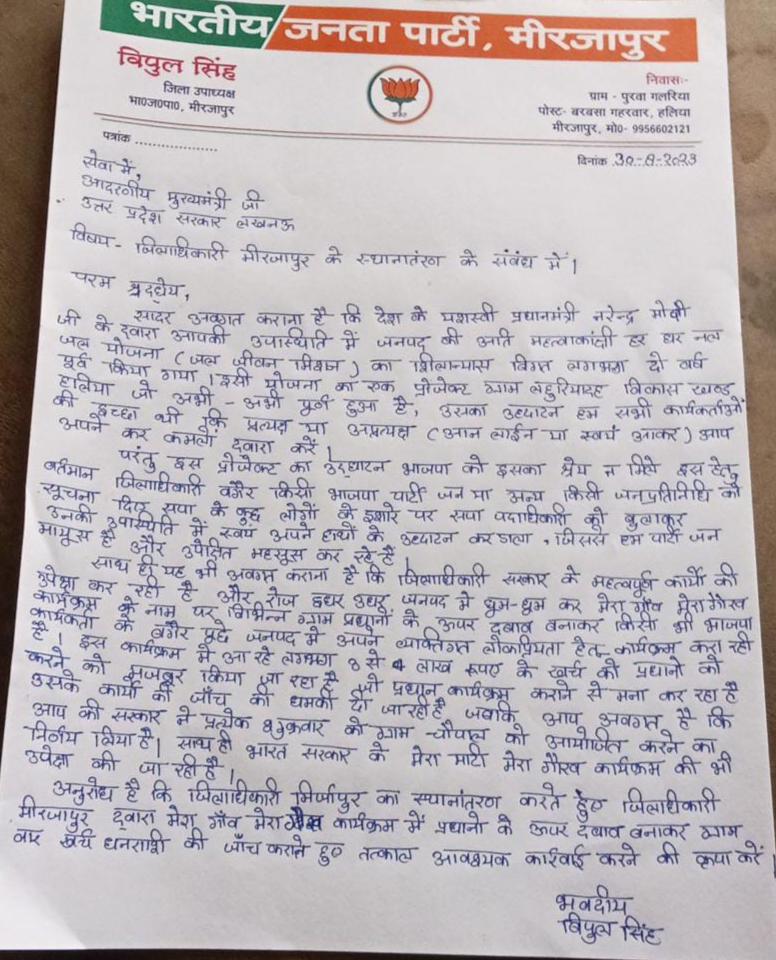 भारतीय जनता पार्टी, मीरजापुर
विपुल सिंह
जिला उपाध्यक्ष
भा0ज0पा0, मीरजापुर
निवासः-
ग्राम - पुरवा गलरिया
पोस्ट- बरबसा गहरवार, हलिया
मीरजापुर, मो0- 9956602121
पत्रांक ....................
दिनांक 30-8-2023
सेवा में,
आदरणीय मुख्यमंत्री जी
उत्तर प्रदेश सरकार लखनऊ
विषय - जिलाधिकारी मीरजापुर के स्थानातंरण के संबंध में।
परम श्रद्धेय,
सादर अवगत कराना है कि देश के यशस्वी प्रधानमंत्री नरेन्द्र मोदी
जी के द्वारा आपकी उपास्थिति में जनपद की अति महत्वाकांक्षी हर घर नल
जल योजना (जल जीवन मिशन) का शिलान्यास विगत लगभग दो वर्ष
पूर्व किया गया। इसी योजना का एक प्रोजेक्ट ग्राम लहुरियादह विकास खण्ड
हलिया जो अभी - अभी पूर्ण हुआ है, उसका उद्घाटन हम सभी कार्यकर्ताओं
की इच्छा थी कि प्रत्यक्ष या अप्रत्यक्ष (आन लाईन या स्वयं आकर) आप
अपने कर कमलों द्वारा करें।
परंतु इस प्रोजेक्ट का उद्घाटन भाजपा को इसका श्रेय न मिले इस हेतु
वर्तमान जिलाधिकारी वगैर किसी भाजपा पार्टी जन या अन्य किसी जनप्रतिनिधि को
सूचना दिए सपा के कुछ लोगों के इशारे पर सपा पदाधिकारी को बुलाकर
उनकी उपास्थिति में स्वयं अपने हाथों के उद्घाटन कर डाला, जिससे हम पार्टी जन
मायूस है और उपेक्षित महसूस कर रहे है।
साथ ही यह भी अवगत कराना है कि जिलाधिकारी सरकार के महत्वपूर्ण कार्यो की
उपेक्षा कर रही है और रोज इधर उधर जनपद में घुम-घुम कर मेरा गाँव मेरा गौरव
कार्यक्रम के नाम पर विभिन्न ग्राम प्रधानों के ऊपर दबाव बनाकर किसी भी भाजपा
कार्यकर्ता के वगैर पूछे जनपद में अपने व्याक्तिगत लोकप्रियता हेतु कार्यक्रम करा रही
है। इस कार्यक्रम में आ रहे लगभग 3 से 4 लाख रूपए के खर्च को प्रधानों को
करने को मजबूर किया जा रहा है जो प्रधान कार्यक्रम कराने से मना कर रहा है
उसके कार्यो की जाँच की धमकी दी जा रही है जबकि आप अवगत है कि
आप की सरकार ने प्रत्येक शुक्रवार को ग्राम - चौपाल को आयोजित करने का
निर्णय लिया है। साथ ही भारत सरकार के मेरा माटी मेरा गौरव कार्यक्रम की भी
उपेक्षा की जा रही है।
अनुरोध है कि जिलाधिकारी मिर्जापुर का स्थानांतरण करते हुए जिलाधिकारी
मीरजापुर द्वारा मेरा गाँव मेरा गौरव कार्यक्रम में प्रधानो के ऊपर दबाव बनाकर ग्राम
वार खर्च धनराशी की जाँच कराते हुए तत्काल आवश्यक कार्रवाई करने की कृपा करें
भवदीय
विपुल सिंह